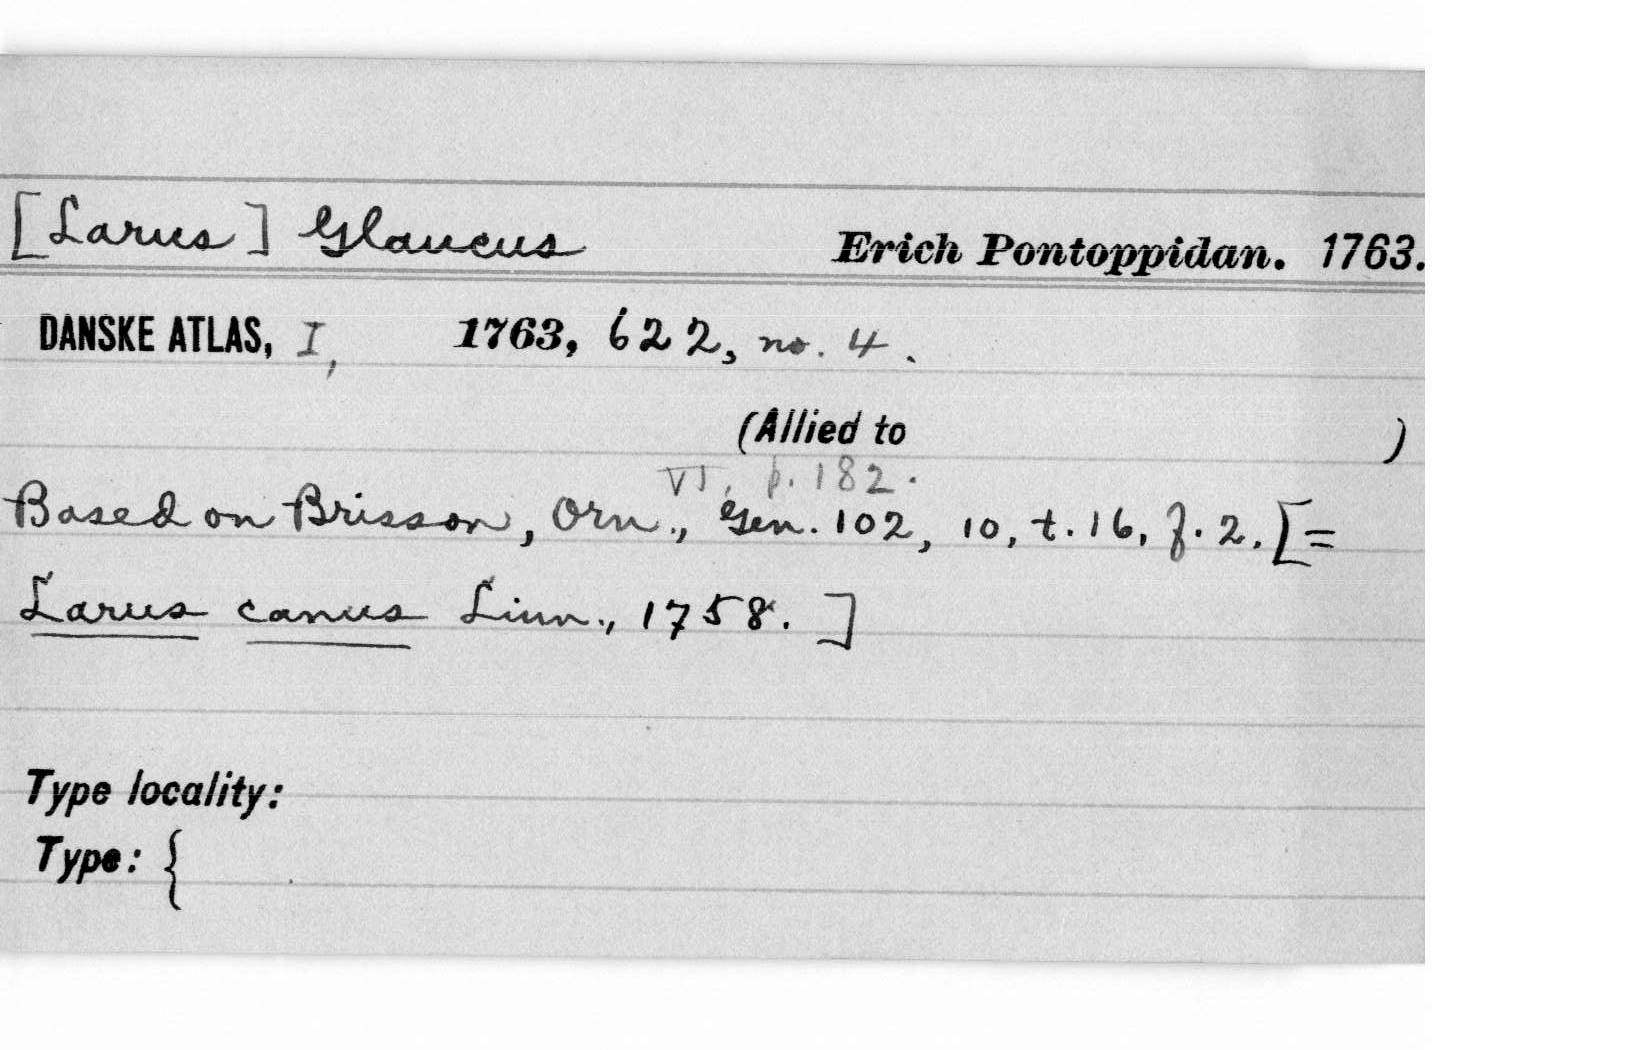 [Larus] Glaucus Erich Pontoppidan. 1763.
DANSKE ATLAS, I, 1763, 622, no. 4.
(Allied to )
VI, p. 182.
Based on Brisson, Orn., Gen. 102, 10, t. 16, f. 2. [=
Larus canus Linn., 1758.]
Type locality:
Type: {